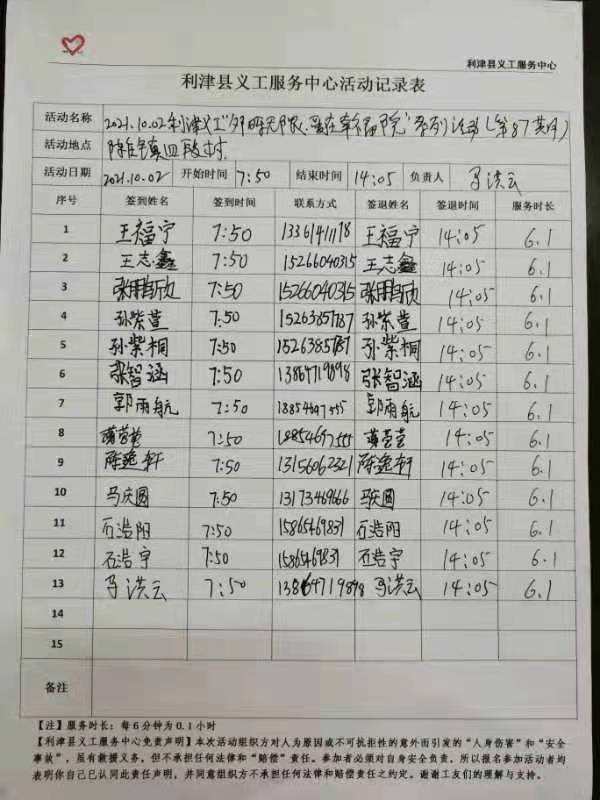 利津县义工服务中心
利津县义工服务中心活动记录表
活动名称 2021.10.02利津义工“邻暖无限、爱在幸福院”系列活动(第87期)
活动地点 陈庄镇四段村
活动日期 2021.10.02 开始时间 7:50 结束时间 14:05 负责人 马洪云
序号 签到姓名 签到时间 联系方式 签退姓名 签退时间 服务时长
1 王福宁 7:50 13361411178 王福宁 14:05 6.1
2 王志鑫 7:50 15266040315 王志鑫 14:05 6.1
3 张鹏欣 7:50 15266040315 张鹏欣 14:05 6.1
4 孙紫萱 7:50 15263857787 孙紫萱 14:05 6.1
5 孙紫桐 7:50 15263857787 孙紫桐 14:05 6.1
6 张智涵 7:50 13864719898 张智涵 14:05 6.1
7 郭雨航 7:50 18854697555 郭雨航 14:05 6.1
8 7:50 18854697555 14:05 6.1
9 陈逸轩 7:50 13156062321 陈逸轩 14:05 6.1
10 马庆圆 7:50 13173469666 马庆圆 14:05 6.1
11 石浩阳 7:50 15865469831 石浩阳 14:05 6.1
12 石浩宇 7:50 15865469831 石浩宇 14:05 6.1
13 马洪云 7:50 13864719898 马洪云 14:05 6.1
14
15
备注
【注】服务时长：每6分钟为0.1小时
【利津县义工服务中心免责声明】本次活动组织方对人为原因或不可抗拒性的意外而引发的“人身伤害”和“安全
事故”，虽有救援义务，但不承担任何法律和“赔偿”责任。参加者必须对自身安全负责，所以报名参加活动者均
表明你自己已认同此责任声明，并同意组织方不承担任何法律和赔偿责任之约定。谢谢工友们的理解与支持。